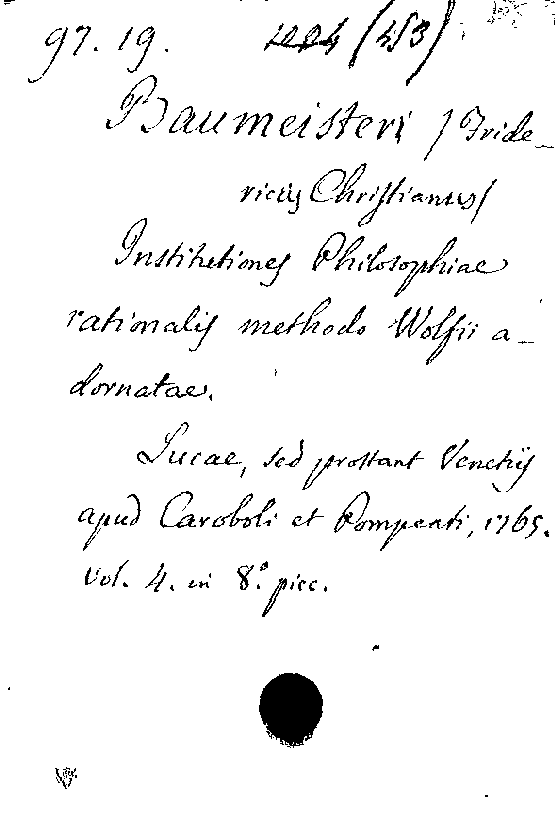 97. 19. (453)
Baumeisteri /Fride_
ricus Christianus/
Institutiones Philosophiae
rationalis methodo Wolfii a_
dornatae.
Lucae, sed prostant Venetiis
apud Caroboli et Pompeati, 1765.
Vol. 4. in 8.° picc.